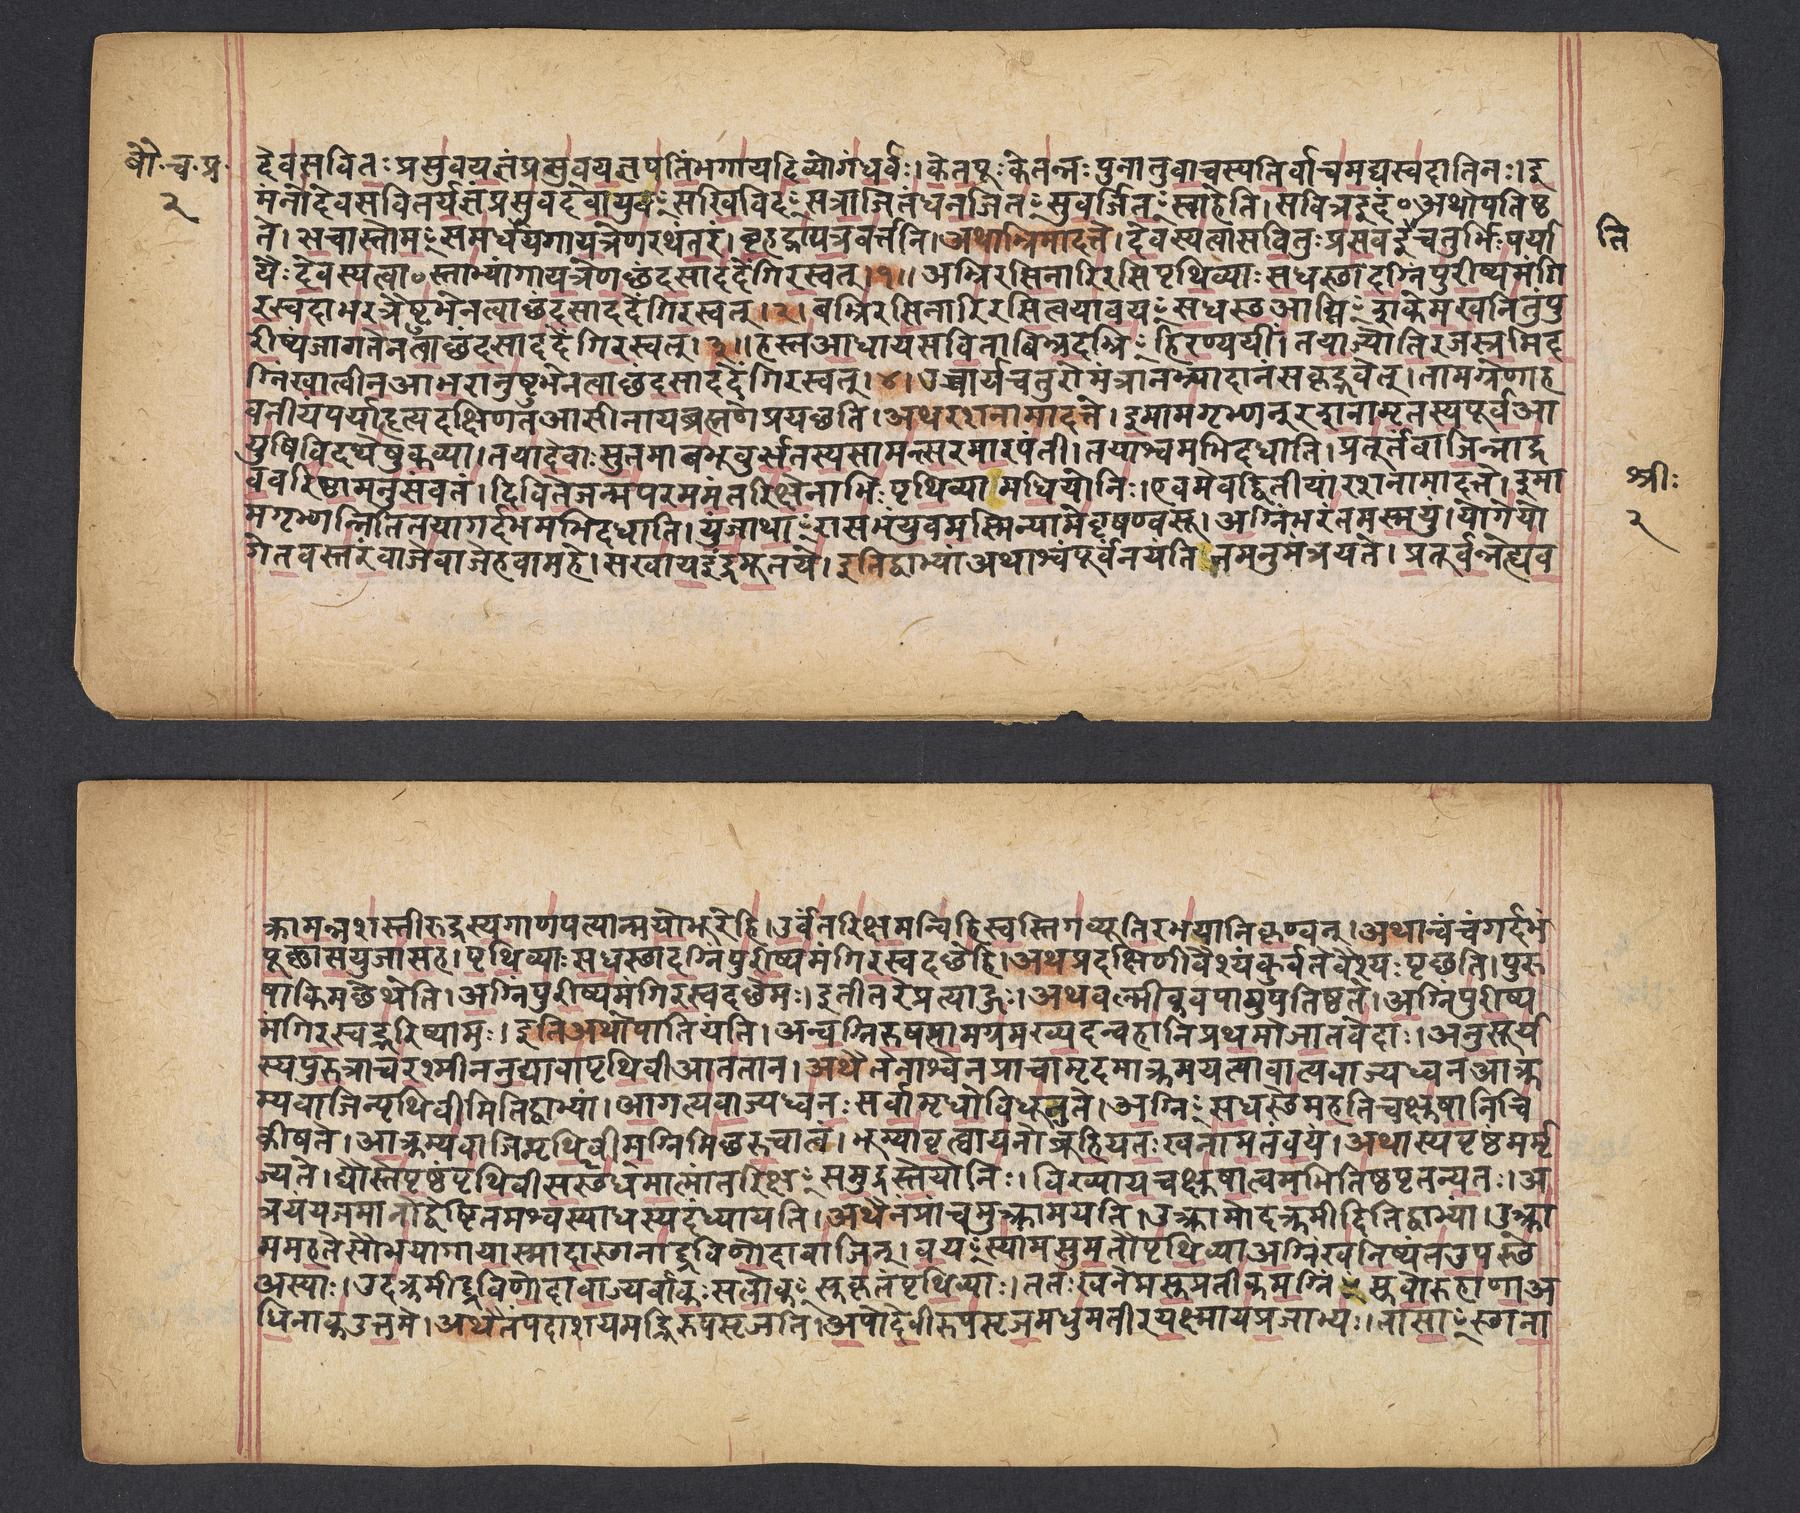 बौ.च.प्र. देवसवितः प्रसुवयज्ञंप्रसुवयज्ञपतिंभगायदिव्योगंधर्वः। केतपूःकेतन्नः पुनातुवाचस्पतिर्वाचमद्यस्वदातिनः। इ
२ मंनोदेवसवितर्यज्ञंप्रसुवदेवायुवꣳसखिविदꣳसत्राजितंधनजितꣳसुवर्जितꣳस्वाहेति। सवित्रइदं०अथोपतिष्ठ
ते। ऋचास्तोमꣳसमर्धयगायत्रेणरथंतरं। बृहद्गायत्रवर्त्तनि। अथाभ्रिमादत्ते। देवस्यत्वासवितुःप्रसवइतिचतुर्भिःपर्या
ति
यैः देवस्यत्वा०स्ताभ्यांगायत्रेणछंदसाददेंगिरस्वत्। १॥ अभ्रिरसिनारिरसिपृथिव्याः सधस्छादग्निंपुरीष्यमंगि
रस्वदाभरत्रैष्टुभेनत्वाछंदसाददेंगिरस्वत्। २। बभ्रिरसिनारिरसित्वयावयꣳसधस्छआग्निꣳशकेमखनितुंपु
रीष्यंजागतेनत्वाछंदसाददेंगिरस्वत्। ३॥ हस्तआधायसविताबिभ्रदभ्रिꣳहिरण्ययीं। तयाज्योतिरजस्रमिद
ग्निंखात्वीनआभरानुष्टुभेनत्वाछंदसाददेंगिरस्वत्। ४। उच्चार्यचतुरोमंत्रानभ्र्यादानंसकृद्भवेत्। तामग्रेणाह
वनीयंपर्याहृत्यदक्षिणतआसीनायब्रह्मणेप्रयच्छति। अथरशनामादत्ते। इमामगृभ्णन्रशनामृतस्यपूर्वआ
युषिविदथेषुकव्या। तयादेवाःसुतमाबभूवुर्ऋतस्यसामन्त्सरमारपंती। तयाश्वमभिदधाति। प्रतूर्तंवाजिन्नाद्र
ववरिष्ठामनुसंवतं। दिवितेजन्मपरममंतरिक्षेनाभिःपृथिव्यामधियोनिः। एवमेवद्वितीयांरशनामादत्ते। इमा
श्रीः
मगृभ्णन्नितितयागर्दभमभिदधाति। युंजाथाꣳरासभंयुवमस्मिन्यामेवृषण्वसू। अग्निंभरंतमस्मयुं। योगेयो
२
गेतवस्तरंवाजेवाजेहवामहे। सखायइंद्रमूतये। इतिद्वाभ्यांअथाश्वंपूर्वंनयंतितमनुमंत्रयते। प्रतूर्वन्नेह्यव
क्रामन्नशस्तीरुद्रस्यगाणपत्यान्मयोभूरेहि। उर्वंतरिक्षमन्विहिस्वस्तिगव्यूतिरभयानिकृण्वन्। अथान्वंचंगर्दभं
पूष्णासयुजासह। पृथिव्याःसधस्छादग्निंपुरीष्यमंगिरस्वदच्छेहि। अथप्रदक्षिणीवैश्यंकुर्वतेवैश्यःपृछति। पुरु
षाःकिमछेथेति। अग्निंपुरीष्यमंगिरस्वदछेमः। इतीतरेप्रत्याहुः। अथवल्मीकवपामुपतिष्ठते। अग्निंपुरीष्य
मंगिरस्वद्भरिष्यामः। इतिअथोपातियंति। अन्वग्निरुषसामग्रमख्यदन्वहानिप्रथमोजातवेदाः। अनुसूर्य
स्यपुरुत्राचरश्मीननुद्यावापृथिवीआततान। अथैतेनाश्वेनप्राचामृदमाक्रमयत्यावात्यवाज्यध्वनआक्र
म्यवाजिन्पृथिवीमितिद्वाभ्यां। आगत्यवाज्यध्वनःसर्वामृधोविधूनुते। अग्निꣳसधस्छेमहतिचक्षुषानिचि
कीषते। आक्रम्यवाजिन्पृथिवीमग्निमिछरुचात्वं। भूम्यावृत्वायनोब्रूहियतःखनामतंवयं। अथास्यपृष्ठमर्मृ
ज्यते। द्यौस्तेपृष्ठंपृथिवीसधस्छमात्मांतरिक्षꣳसमुद्रस्तेयोनिः। विख्यायचक्षुषात्वमभितिष्ठपृतन्यतः। अ
त्रयंयजमानोद्वेष्टितमश्वस्याधस्पदंध्यायति। अथैनंप्रांचमुत्क्रामयति। उत्क्रामोदक्रमीदितिद्वाभ्यां। उत्क्रा
ममहतेसौभगायास्मादास्छानाद्द्रविणोदावाजिन्। वयꣳस्यामसुमतौपृथिव्याअग्निंखनिष्यंतउपस्छे
अस्याः। उदक्रमीद्द्रविणोदावाज्यर्वाकःसलोकꣳसुकृतंपृथिव्याः। ततःखनेमसुप्रतीकमग्निꣳसुवोरुहाणाअ
धिनाकउत्तमे। अथैतंपदाशयमद्भिरुपसृजति। अपोदेवीरुपसृजमधुमतीरयक्ष्मायप्रजाभ्यः। तासाꣳस्छाना